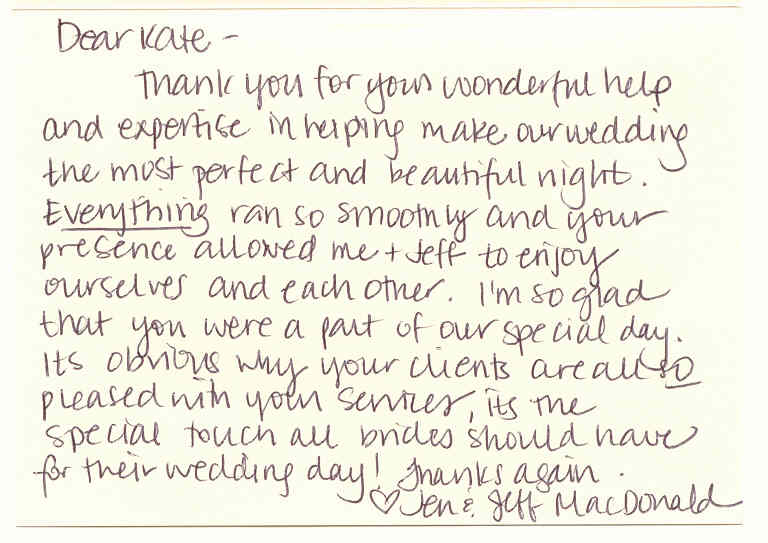 Dear Kate -
Thank you for your wonderful help
and expertise in helping make our wedding
the most perfect and beautiful night.
Everything ran so smoothly and your
presence allowed me + Jeff to enjoy
ourselves and each other. I'm so glad
that you were a part of our special day.
Its obvious why your clients are all so
pleased with your services, its the
special touch all brides should have
for their wedding day! Thanks again.
♡ Jen & Jeff MacDonald